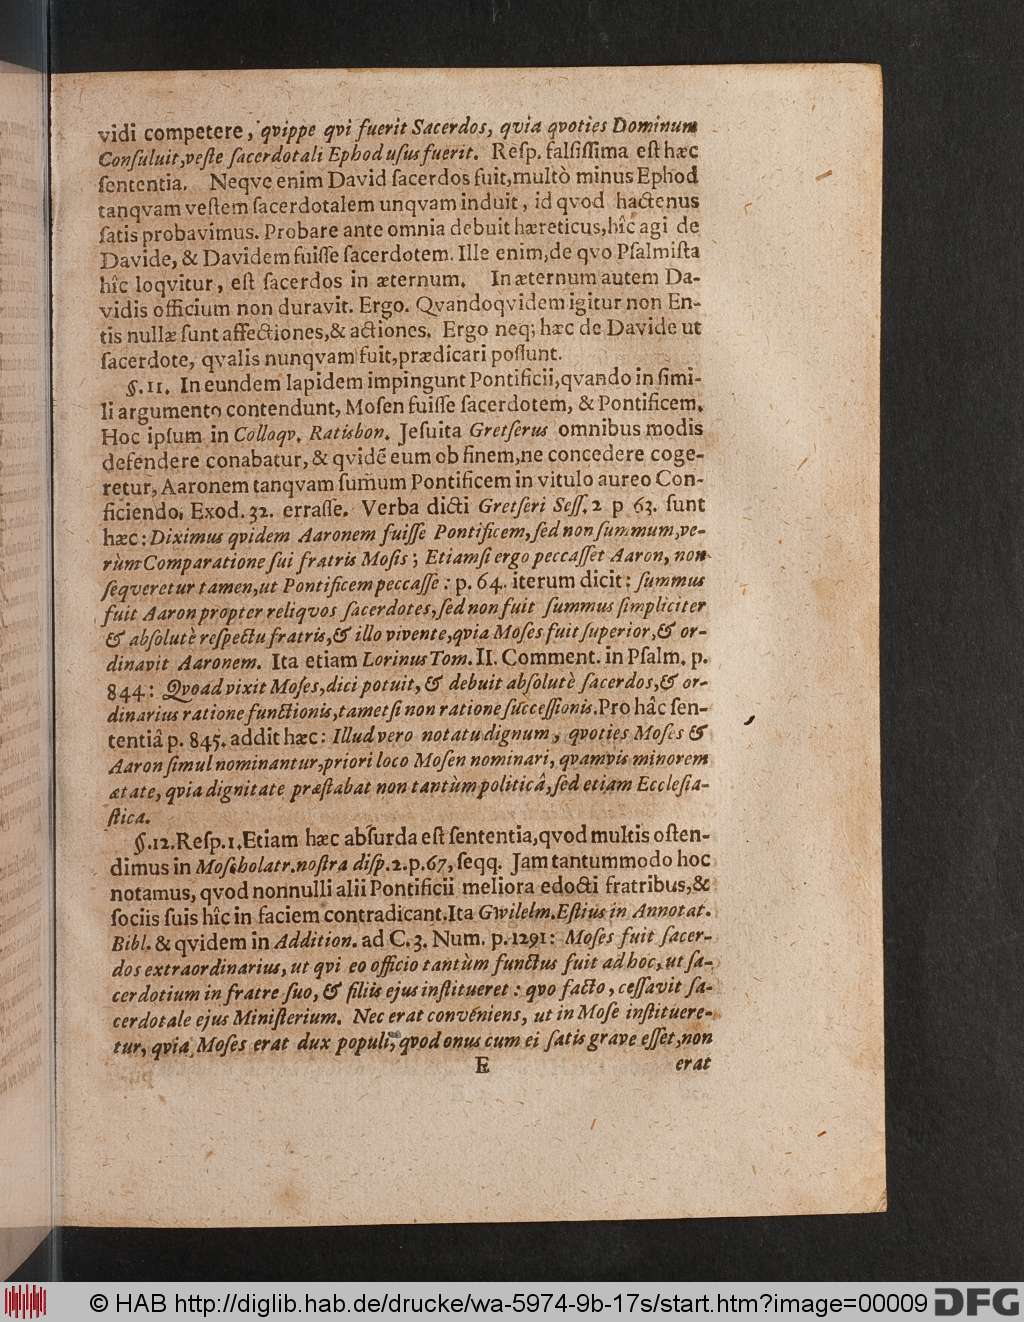 vidi competere, qvippe qvi fuerit Sacerdos, qvia qvoties Dominum
Conſuluit, veſte ſacerdotali Ephod uſus fuerit. Reſp. falſiſſima eſt hæc
ſententia. Neqve enim David ſacerdos fuit, multò minus Ephod
tanqvam veſtem ſacerdotalem unqvam induit, id qvod hactenus
ſatis probavimus. Probare ante omnia debuit hæreticus, hîc agi de
Davide, & Davidem fuiſſe ſacerdotem. Ille enim, de qvo Pſalmiſta
hîc loqvitur, eſt ſacerdos in æternum. In æternum autem Da-
vidis officium non duravit. Ergo. Qvandoqvidem igitur non En-
tis nullæ ſunt affectiones, & actiones. Ergo neq; hæc de Davide ut
ſacerdote, qvalis nunqvam fuit, prædicari poſſunt.
§. 11. In eundem lapidem impingunt Pontificii, qvando in ſimi-
li argumento contendunt, Moſen fuiſſe ſacerdotem, & Pontificem.
Hoc ipſum in Colloqv. Ratisbon. Jeſuita Gretſerus omnibus modis
defendere conabatur, & qvidẽ eum ob finem, ne concedere coge-
retur, Aaronem tanqvam ſum̃um Pontificem in vitulo aureo Con-
ficiendo, Exod. 32. erraſſe. Verba dicti Gretſeri Seſſ. 2 p 63. ſunt
hæc: Diximus qvidem Aaronem fuiſſe Pontificem, ſed non ſummum, ve-
rùm Comparatione ſui fratris Moſis; Etiamſi ergo peccaſſet Aaron, non
ſeqveretur tamen, ut Pontificem peccaſſe: p. 64. iterum dicit: ſummus
fuit Aaron propter reliqvos ſacerdotes, ſed non fuit ſummus ſimpliciter
& abſolutè reſpectu fratris, & illo vivente, qvia Moſes fuit ſuperior, & or-
dinavit Aaronem. Ita etiam Lorinus Tom. II. Comment. in Pſalm. p.
844: Qvoad vixit Moſes, dici potuit, & debuit abſolutè ſacerdos, & or-
dinarius ratione functionis, tametſi non ratione ſucceſſionis. Pro hâc ſen-
tentiâ p. 845. addit hæc: Illud vero notatu dignum, qvoties Moſes &
Aaron ſimul nominantur, priori loco Moſen nominari, qvamvis minorem
ætate, qvia dignitate præſtabat non tantùm politicâ, ſed etiam Eccleſia-
ſtica.
§. 12. Reſp. 1. Etiam hæc abſurda eſt ſententia, qvod multis oſten-
dimus in Moſebolatr. noſtra diſp. 2. p. 67, ſeqq. Jam tantummodo hoc
notamus, qvod nonnulli alii Pontificii meliora edocti fratribus, &
ſociis ſuis hîc in faciem contradicant. Ita Gwilelm. Eſtius in Annotat.
Bibl. & qvidem in Addition. ad C. 3. Num. p. 1291: Moſes fuit ſacer-
dos extraordinarius, ut qvi eo officio tantùm functus fuit ad hoc, ut ſa-
cerdotium in fratre ſuo, & filiis ejus inſtitueret: qvo facto, ceſſavit ſa-
cerdotale ejus Miniſterium. Nec erat convéniens, ut in Moſe inſtituere-
tur, qvia Moſes erat dux populi, qvod onus cum ei ſatis grave eſſet, non
E erat
© HAB http://diglib.hab.de/drucke/wa-5974-9b-17s/start.htm?image=00009 DFG